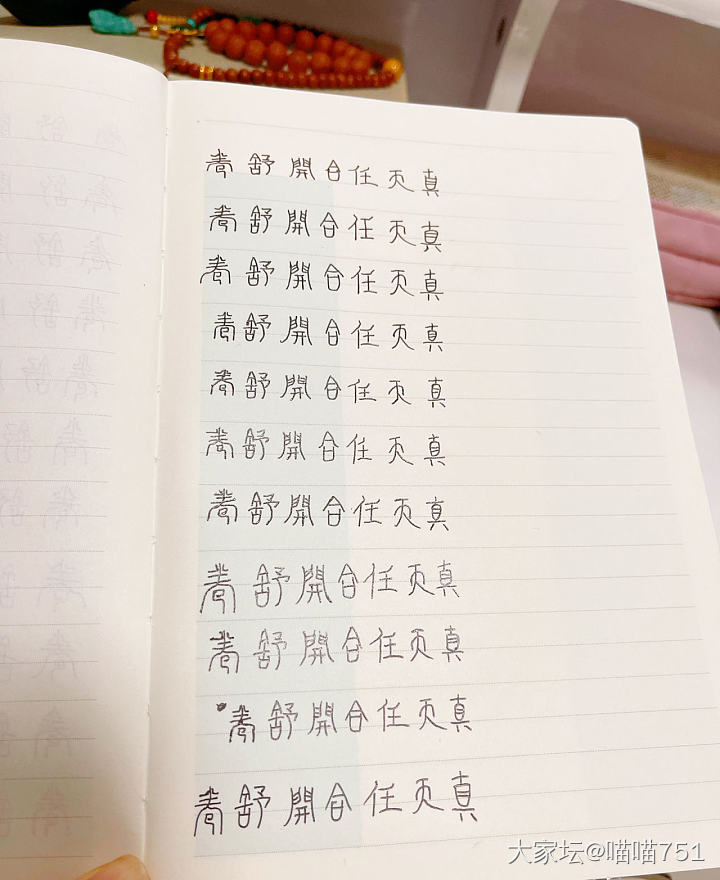 卷舒開合任天真
卷舒開合任天真
卷舒開合任天真
卷舒開合任天真
卷舒開合任天真
卷舒開合任天真
卷舒開合任天真
卷舒開合任天真
卷舒開合任天真
卷舒開合任天真
卷舒開合任天真
大家坛@喵喵751